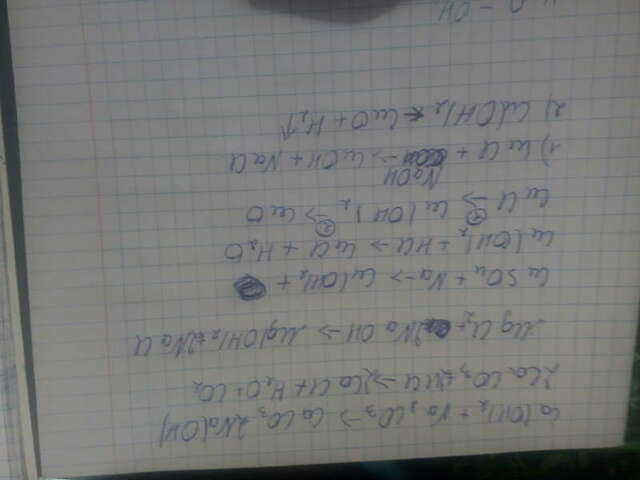 Ca(OH)2 + Na2CO3 → CaCO3 2Na(OH)
2CaCO3 + 2HCl → 2CaCl + H2O + CO2
MgCl2 + 2NaOH → Mg(OH)2 + 2NaCl
CuSO4 + Na → Cu(OH)2 +
Cu(OH)2 + HCl → CuCl + H2O
CuCl →① Cu(OH)2 →② CuO
1) CuCl + NaOH → CuOH + NaCl
2) Cu(OH)2 → CuO + H2↑